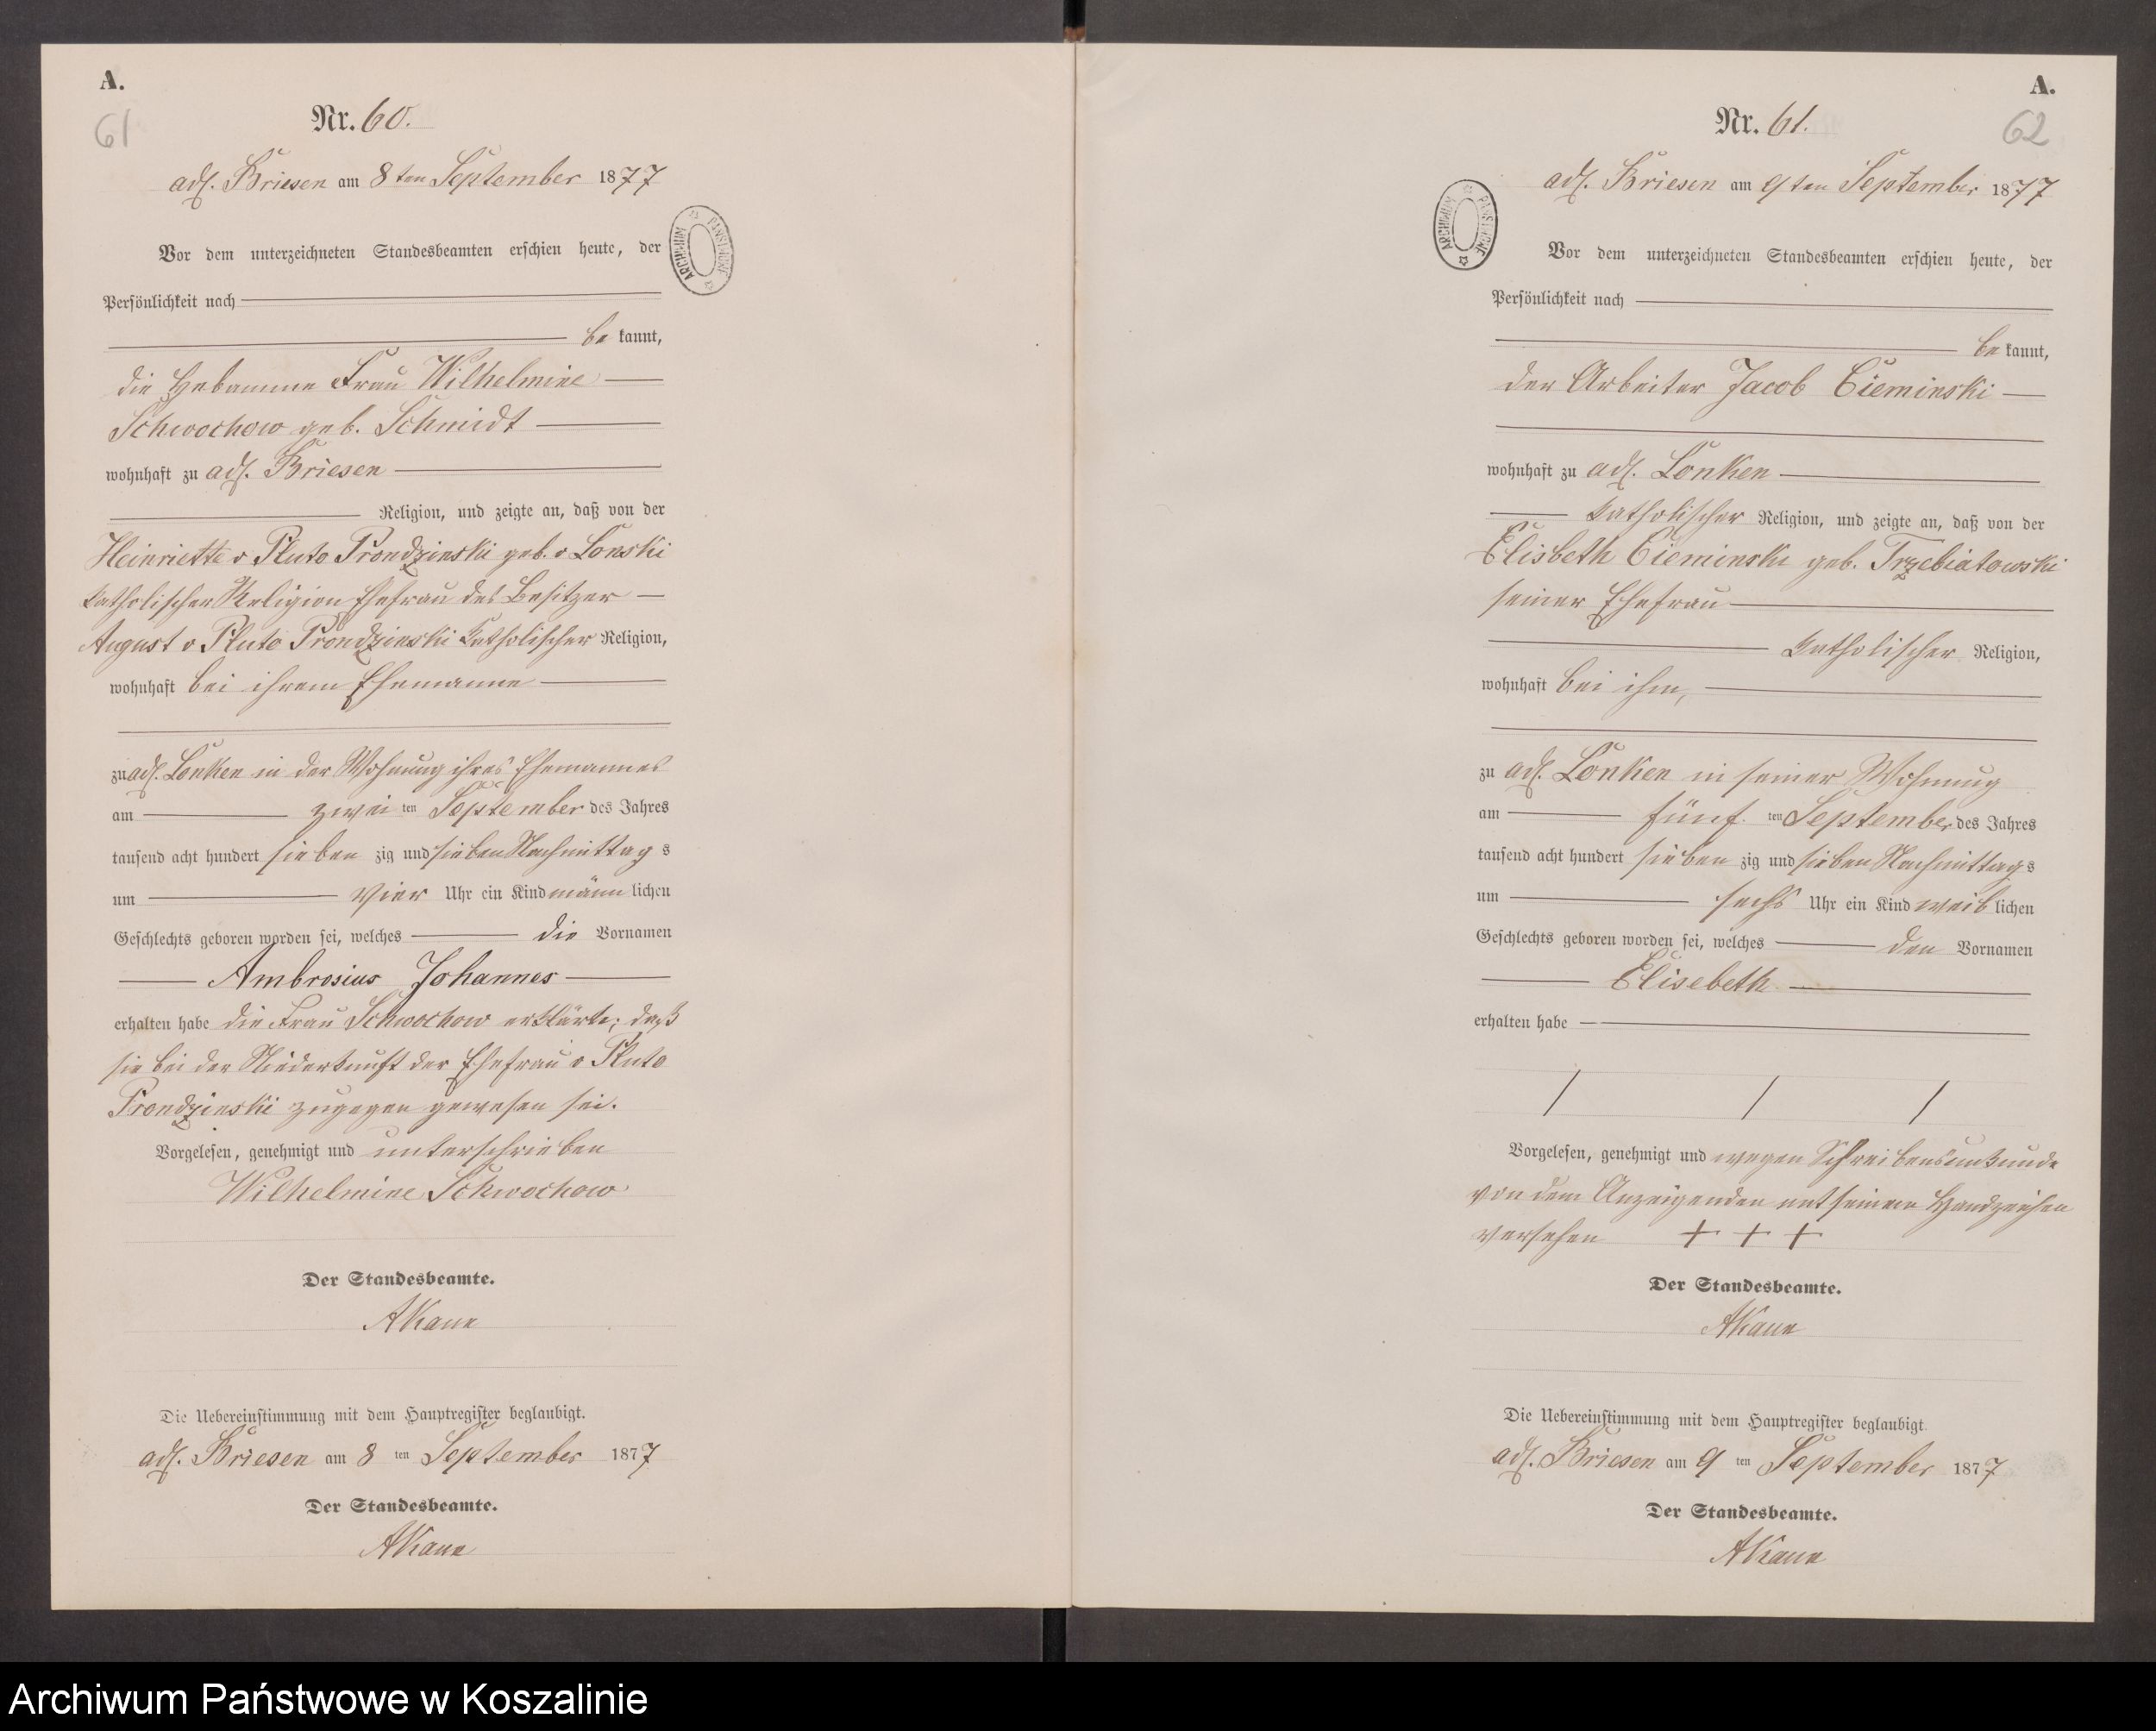 A.
61
Nr. 60.
adl. Briesen am 8ten September 1877
ARCHIWUM PAŃSTWOWE
Vor dem unterzeichneten Standesbeamten erschien heute, der
Persönlichkeit nach
be kannt,
die Hebamme Frau Wilhelmine
Schwochow geb. Schmidt
wohnhaft zu adl. Briesen
Religion, und zeigte an, daß von der
Heinriette v Pluto Prondzinski geb. v Lonski
katholischen Religion Ehefrau des Besitzer
August v Pluto Prondzinski katholischer Religion,
wohnhaft bei ihrem Ehemanne
zu adl. Lonken in der Wohnung ihres Ehemannes
am zwei ten September des Jahres
tausend acht hundert sieben zig und sieben Nachmittag s
um vier Uhr ein Kind männ lichen
Geschlechts geboren worden sei, welches die Vornamen
Ambrosius Johannes
erhalten habe die Frau Schwochow erklärte, daß
sie bei der Niederkunft der Ehefrau v Pluto
Prondzinski zugegen gewesen sei.
Vorgelesen, genehmigt und unterschrieben
Wilhelmine Schwochow
Der Standesbeamte.
AKaun
Die Uebereinstimmung mit dem Hauptregister beglaubigt.
adl. Briesen am 8 ten September 1877
Der Standesbeamte.
AKaun
A.
62
Nr. 61.
adl. Briesen am 9ten September 1877
ARCHIWUM PAŃSTWOWE
Vor dem unterzeichneten Standesbeamten erschien heute, der
Persönlichkeit nach
be kannt,
der Arbeiter Jacob Cieminski
wohnhaft zu adl. Lonken
katholischer Religion, und zeigte an, daß von der
Elisbeth Cieminski geb. Trzebiatowski
seiner Ehefrau
katholischer Religion,
wohnhaft bei ihm,
zu adl. Lonken in seiner Wohnung
am fünf ten September des Jahres
tausend acht hundert sieben zig und sieben Nachmittag s
um sechs Uhr ein Kind weib lichen
Geschlechts geboren worden sei, welches den Vornamen
Elisebeth
erhalten habe
Vorgelesen, genehmigt und wegen Schreibensunkunde
von dem Anzeigenden mit seinem Handzeichen
versehen + + +
Der Standesbeamte.
AKaun
Die Uebereinstimmung mit dem Hauptregister beglaubigt.
adl. Briesen am 9 ten September 1877
Der Standesbeamte.
AKaun
Archiwum Państwowe w Koszalinie